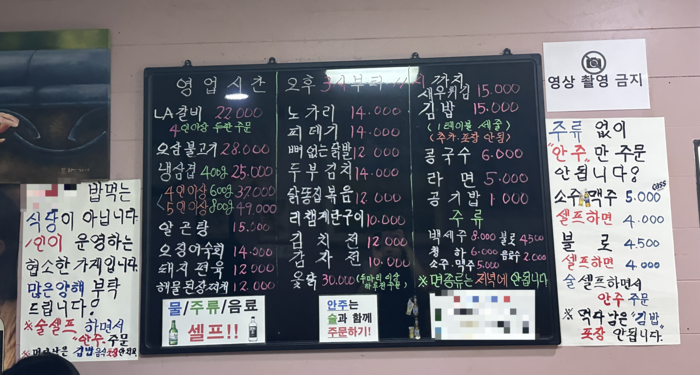 영업시간 오후 3시부터 까지
LA갈비 22000
4인이상 두판주문
오삼불고기 28.000
냉삼겹 400g 25.000
4인이상 600g 37000
5인이상 800g 49.000
알곤랑 15.000
오징어숙회 14.000
돼지편육 12.000
해물된장찌개 12.000
노가리 14.000
피데기 14.000
뼈없는닭발 12.000
두부김치 14.000
닭똥집볶음 12.000
리챔계란구이 10.000
김치전 12.000
감자전 10.000
옻닭 30.000
새우튀김 15.000
김밥 15.000
(1테이블 세줄)
(추가 포장 안됨)
콩국수 6.000
라면 5.000
공기밥 1000
주류
백세주 8.000 불로 4500
청하 6.000 음료수 2.000
소주·맥주 5.000
※면종류는 저녁에 안됩니다
물/주류/음료
셀프!!
안주는
술과 함께
주문하기!
밥먹는
식당이 아닙니다
1인이 운영하는
협소한 가게입니다.
많은 양해 부탁
드립니다.
※술셀프 하면서
"안주" 주문
영상 촬영 금지
주류 없이
"안주"만 주문
안됩니다?
소주 맥주 5.000
셀프하면 4.000
불로 4.500
셀프하면 4.000
술셀프하면서
안주 주문
※ 먹다남은 "김밥"
포장 안됩니다.